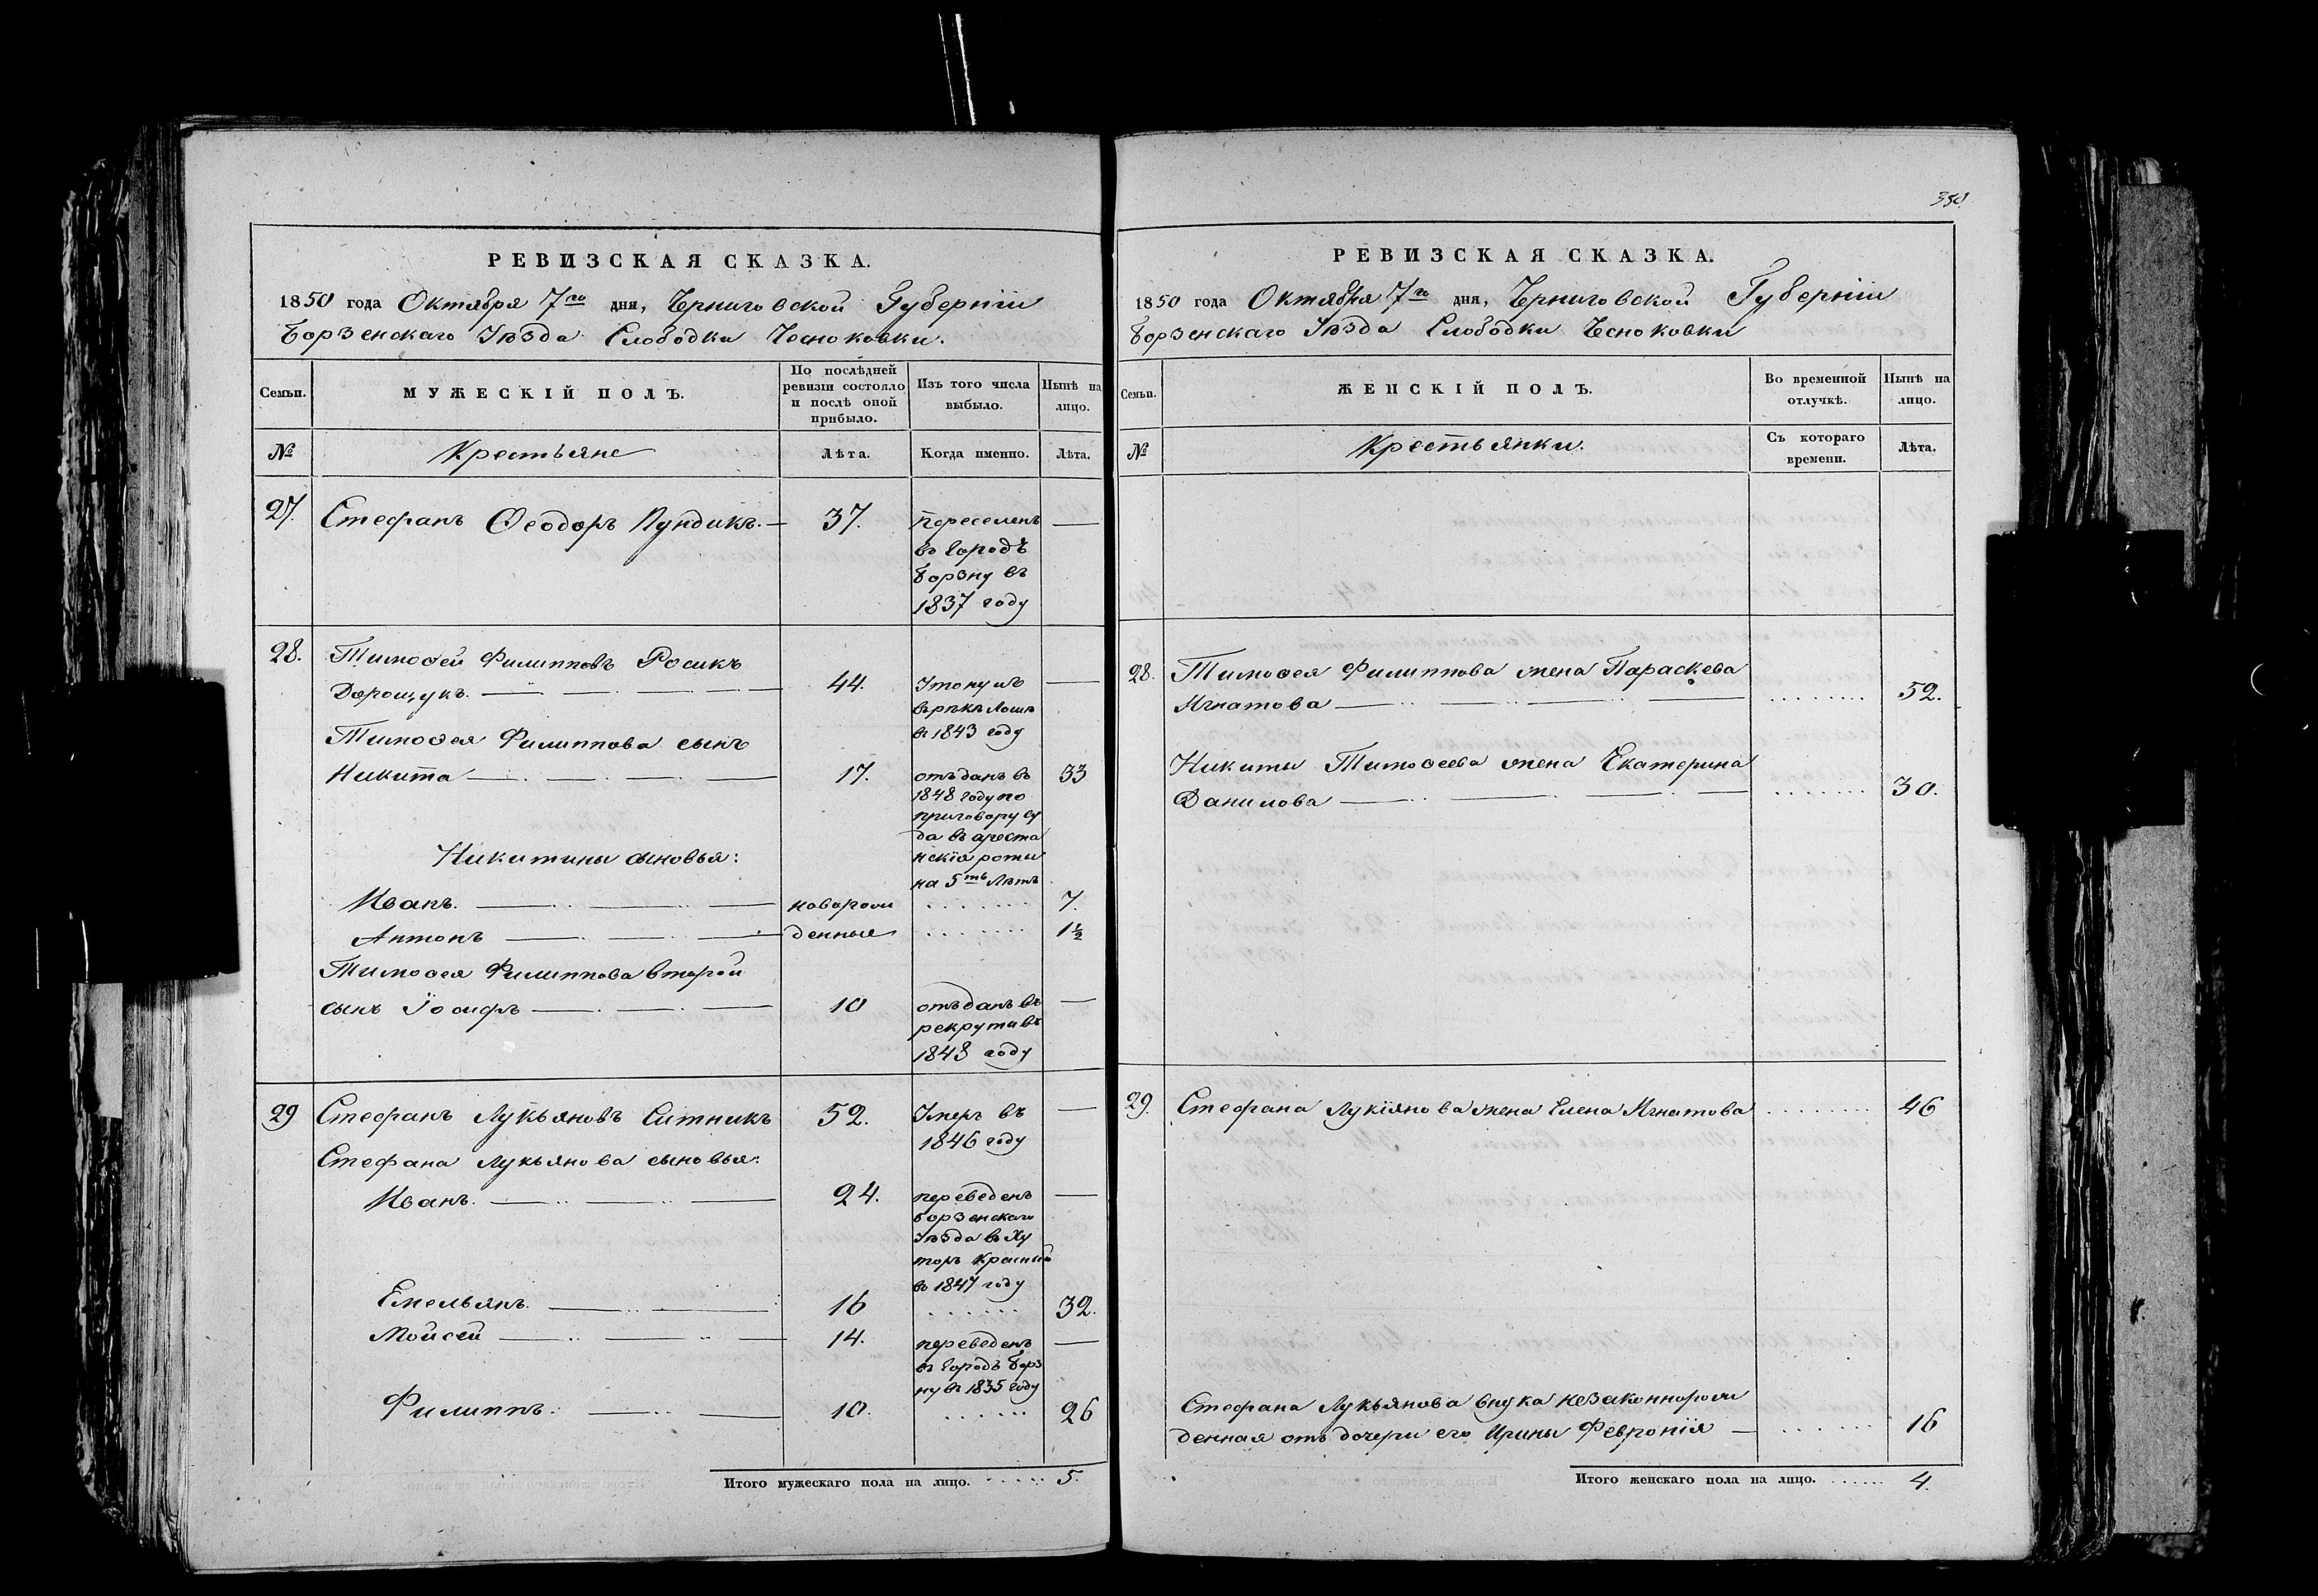 РЕВИЗСКАЯ СКАЗКА.
1850 года Октября 7го дня, Черниговской Губерніи
Борзенскаго Уѣзда Слободки Чесноковки.
Семьи.
МУЖЕСКІЙ ПОЛЪ.
По послѣдней ревизіи состояло и послѣ оной прибыло.
Изъ того числа выбыло.
Нынѣ на лицо.
№
Крестьяне
Лѣта.
Когда именно.
Лѣта.
27. Стефанъ Ѳеодоръ Пундикъ. 37. Пореселенъ
въ городъ
Борзну въ
1837 году
28. Тимоѳей Филипповъ Росикъ
Дорощукъ. 44. Утонулъ
въ рѣкѣ
въ 1843 году
Тимоѳея Филиппова сынъ
Никита 17. отъданъ въ 33
1848 году по
приговору су
да въ ареста
нскія роты
на 5ть лѣтъ
Никитины сыновья:
Иванъ. новорож 7.
Антонъ денные 1½
Тимоѳея Филиппова второй
сынъ Іосифъ 10 отъданъ въ
рекруты въ
1848 году
29 Стефанъ Лукьяновъ Ситникъ 52. Умеръ въ
1846 году
Стефана Лукьянова сыновья:
Иванъ. 24. переведенъ
Борзенскаго
Уѣзда въ Ху
торъ Красный
въ 1847 году
Емельянъ. 16 32.
Мойсей 14. переведенъ
въ городъ Борз
ну въ 1835 году
Филиппъ. 10. 26
Итого мужескаго пола на лицо. 5.
350
РЕВИЗСКАЯ СКАЗКА.
1850 года Октября 7го дня, Черниговской Губерніи
Борзенскаго Уѣзда Слободки Чесноковки
Семьи.
ЖЕНСКІЙ ПОЛЪ.
Во временной отлучкѣ.
Нынѣ на лицо.
№
Крестьянки.
Съ котораго времени.
Лѣта.
28. Тимоѳея Филиппова жена Параскева
Игнатова 52.
Никиты Тимоѳеева жена Екатерина
Данилова 30.
29. Стефана Лукіянова жена Елена Игнатова 46
Стефана Лукьянова внука незаконнорож
денная отъ дочери его Ирины Февронія 16
Итого женскаго пола на лицо. 4.